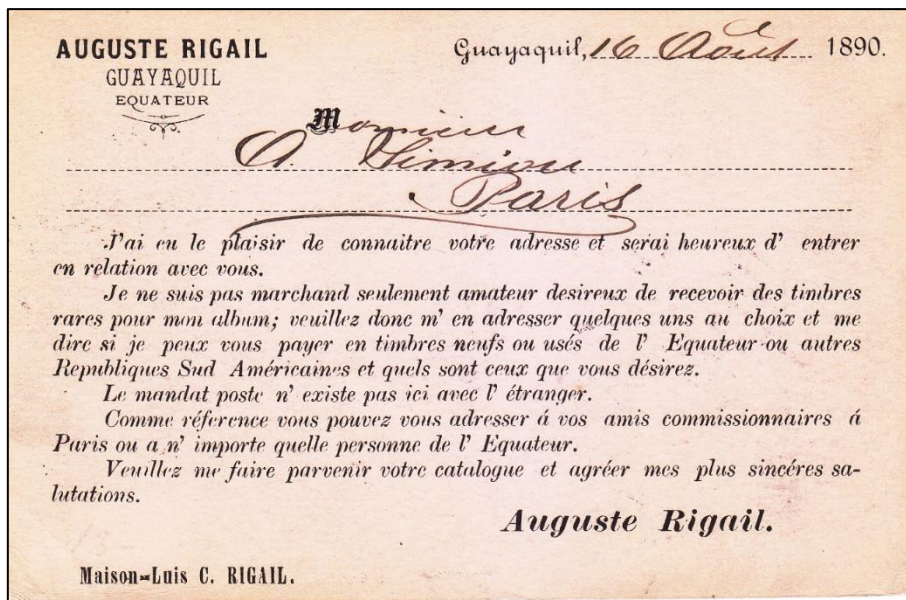 AUGUSTE RIGAIL
GUAYAQUIL
EQUATEUR
Guayaquil, 16 Août 1890.
Monsieur
A. Simion
Paris
J'ai eu le plaisir de connaitre votre adresse et serai heureux d' entrer
en relation avec vous.
Je ne suis pas marchand seulement amateur desireux de recevoir des timbres
rares pour mon album; veuillez donc m' en adresser quelques uns au choix et me
dire si je peux vous payer en timbres neufs ou usés de l' Equateur ou autres
Republiques Sud Américaines et quels sont ceux que vous désirez.
Le mandat poste n' existe pas ici avec l' étranger.
Comme réference vous pouvez vous adresser á vos amis commissionnaires á
Paris ou a n' importe quelle personne de l' Equateur.
Veuillez me faire parvenir votre catalogue et agréer mes plus sincéres sa-
lutations.
Auguste Rigail.
Maison=Luis C. RIGAIL.